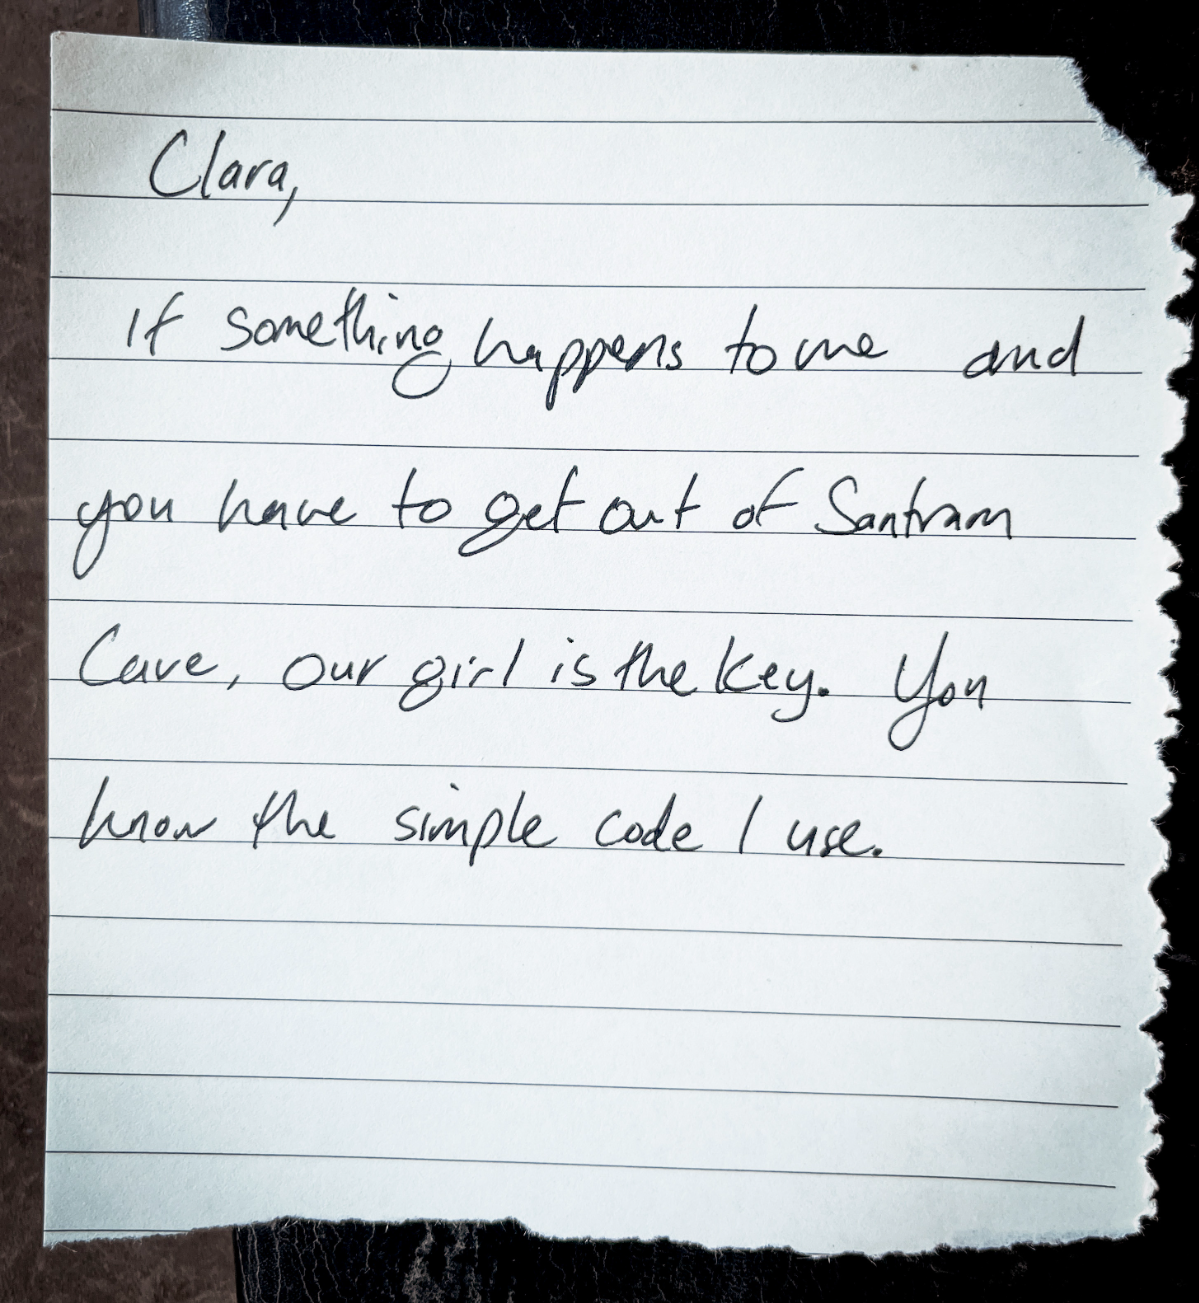 Clara,
If something happens to me and
you have to get out of Santram
Cave, our girl is the key. You
know the simple code I use.